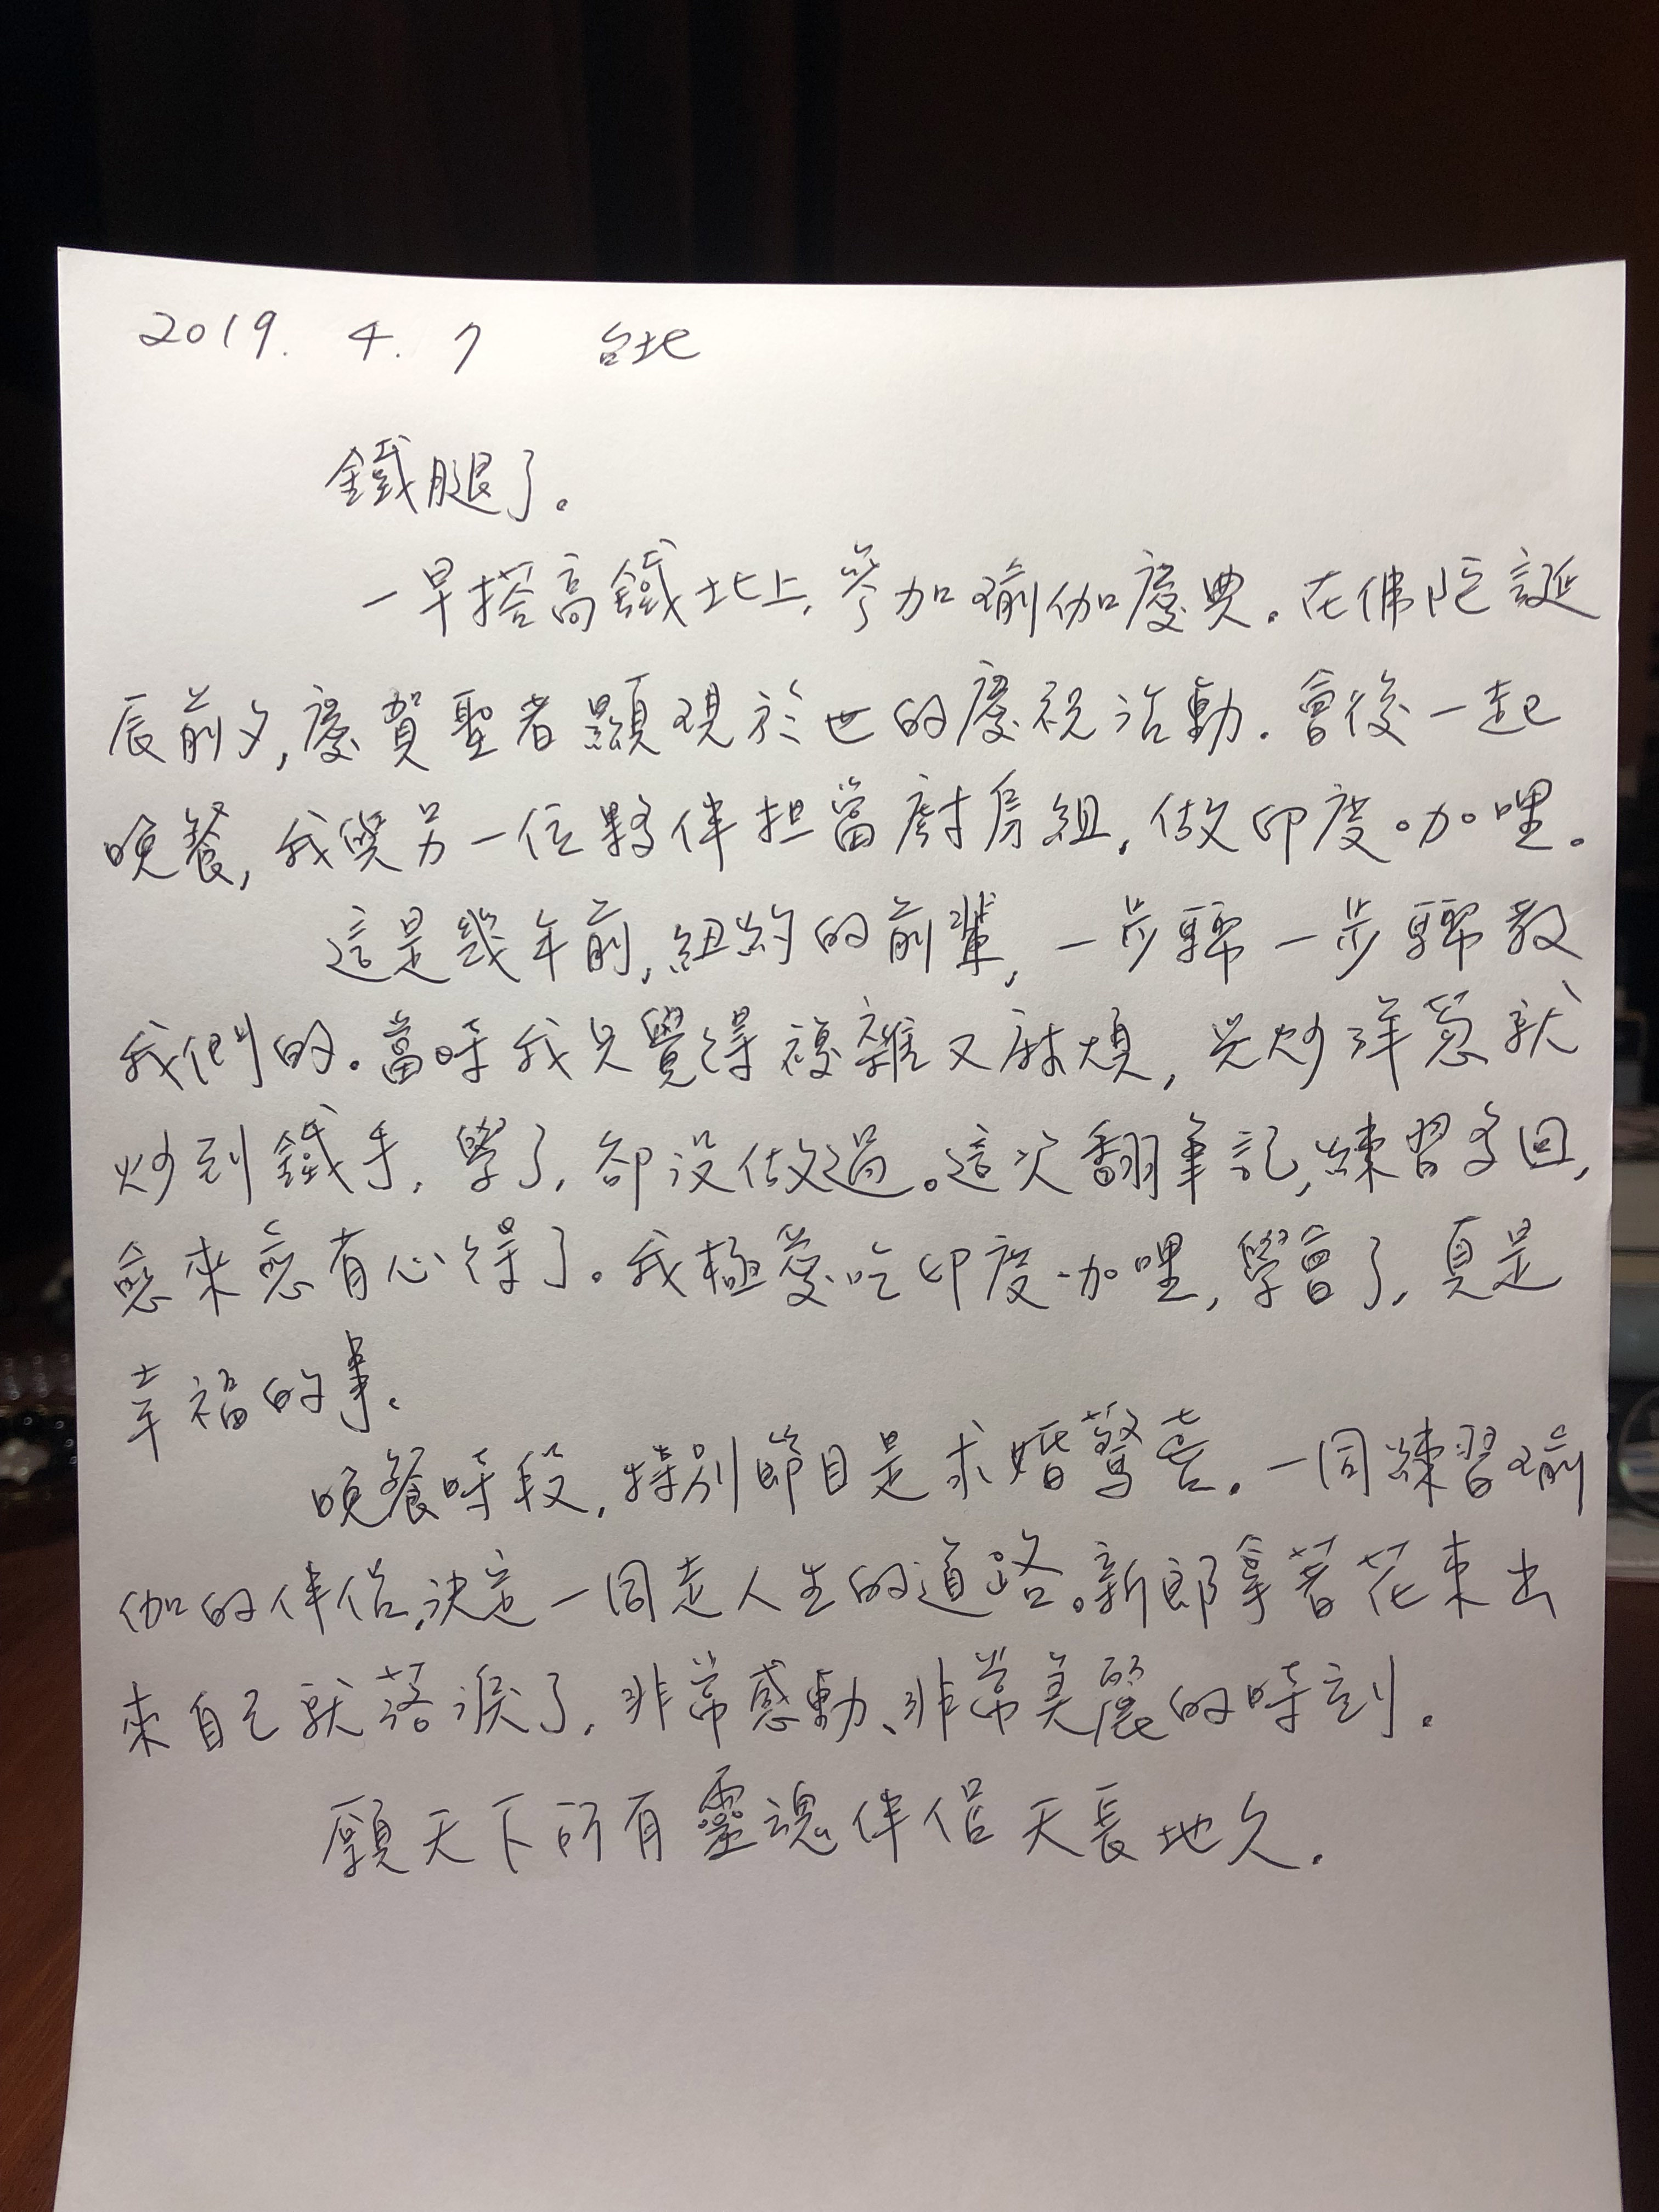 2019. 4. 7 台北
鐵腿了。
一早搭高鐵北上,參加瑜伽慶典。在佛陀誕
辰前夕,慶賀聖者顯現於世的慶祝活動。會後一起
晚餐,我與另一位夥伴担當廚房組,做印度咖哩。
這是幾年前,紐約的前輩,一步驟一步驟教
我們的。當時我只覺得複雜又麻煩,光炒洋蔥就
炒到鐵手,學了,卻沒做過。這次翻筆記,練習多回,
愈來愈有心得了。我極愛吃印度咖哩,學會了,真是
幸福的事。
晚餐時段,特別節目是求婚驚喜。一同練習瑜
伽的伴侶,決定一同走人生的道路。新郎拿著花束出
來自己就落淚了,非常感動、非常美麗的時刻。
願天下所有靈魂伴侶天長地久。